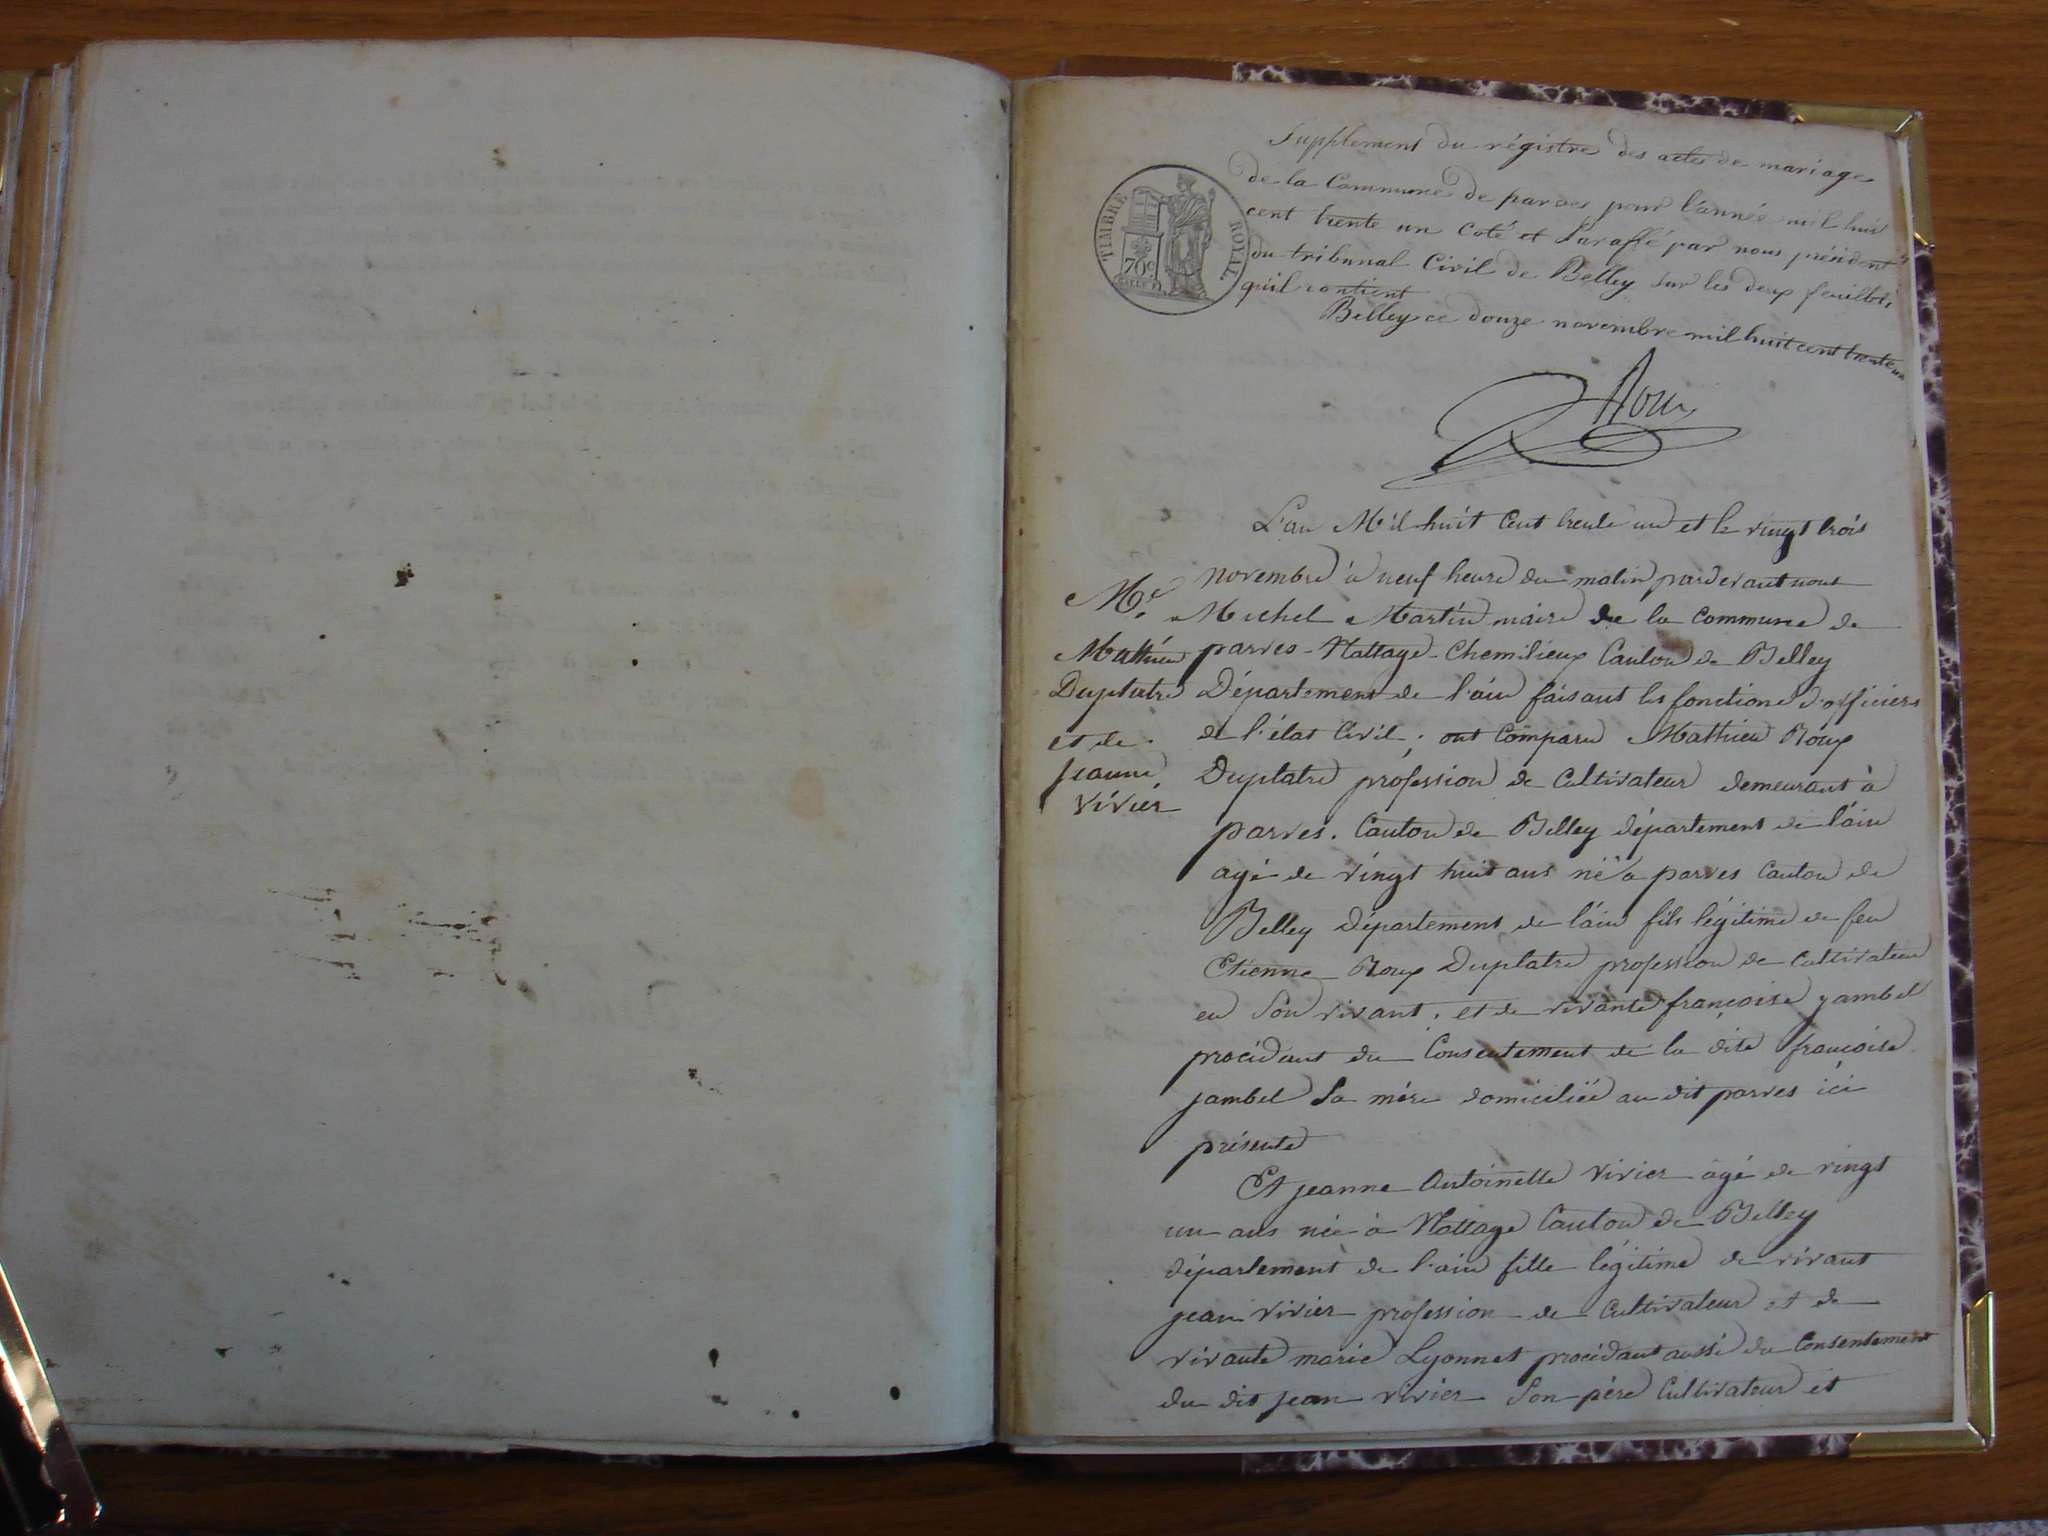 Supplement du régistre des actes de mariage
de la Commune de parves pour l'année mil huit
cent trente un coté et Paraffé par nous président
du tribunal Civil de Belley sur les deux feuillets
qu'il contient
Belley ce douze novembre mil huit cent trente un
TIMBRE ROYAL
70c
Roux
L'an Mil huit Cent trente un et le vingt trois
novembre à neuf heure du matin pardevant nous
Michel Martin maire de la commune de
parves-Nattage-Chemilieux Canton de Belley
Département de l'ain faisant les fonctions d'officiers
de l'état Civil; ont Comparu Mathieu Roux
Duplatre profession de Cultivateur demeurant à
parves. Canton de Belley département de l'ain
agé de vingt huit ans né à parves Canton de
Belley Département de l'ain fils légitime de feu
Etienne Roux Duplatre profession de Cultivateur
en Son vivant. et de vivante françoise jambel
procédant du Consentement de la dite françoise
jambel Sa mére domiciliée au dit parves ici
présente
Mge
Mathieu
Duplatre
et de
Jeanne
Vivier
Et jeanne Antoinette Vivier agé de vingt
un ans née à Nattage Canton de Belley
département de l'ain fille légitime de vivant
jean Vivier profession de Cultivateur et de
vivante marie Lyonnet procédant aussi du Consentement
du dit jean vivier Son père Cultivateur et